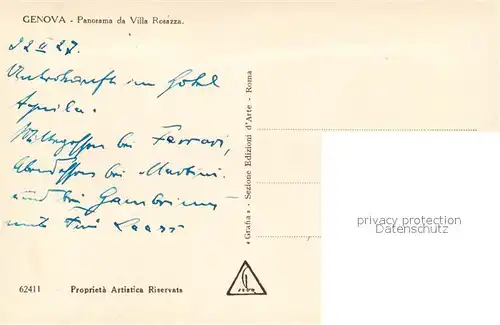 GENOVA - Panorama da Villa Rosazza.
22 II 27.
Unterkunft im Hotel
Aquila.
Mittagessen bei Ferrari,
Abendessen bei Martini
und bei Gambrinus
mit
« Grafia » - Sezione Edizioni d'Arte - Roma
privacy protection
delcampe.net
62411 Proprietà Artistica Riservata